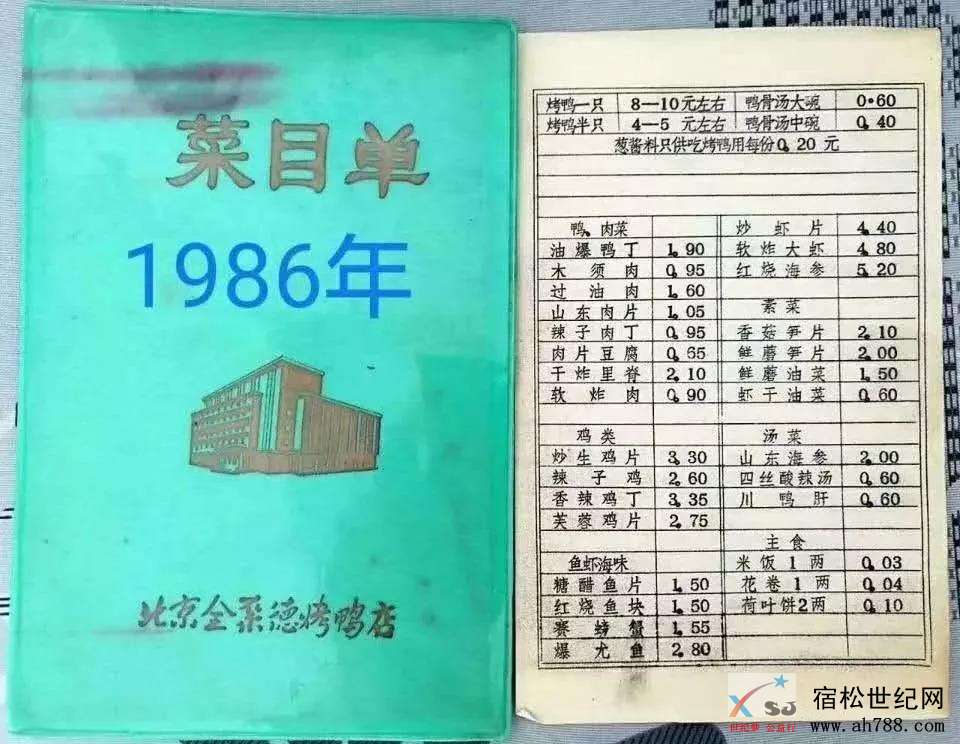 菜目单
1986年
北京全聚德烤鸭店
烤鸭一只 8—10元左右 鸭骨汤大碗 0.60
烤鸭半只 4—5 元左右 鸭骨汤中碗 0.40
葱酱料只供吃烤鸭用每份0.20 元
鸭、肉菜
油爆鸭丁 1.90
木须肉 0.95
过油肉 1.60
山东肉片 1.05
辣子肉丁 0.95
肉片豆腐 0.65
干炸里脊 2.10
软炸肉 0.90
鸡类
炒生鸡片 3.30
辣子鸡 2.60
香辣鸡丁 3.35
芙蓉鸡片 2.75
鱼虾海味
糖醋鱼片 1.50
红烧鱼块 1.50
赛螃蟹 1.55
爆尤鱼 2.80
炒虾片 4.40
软炸大虾 4.80
红烧海参 5.20
素菜
香菇笋片 2.10
鲜蘑笋片 2.00
鲜蘑油菜 1.50
虾干油菜 0.60
汤菜
山东海参 2.00
四丝酸辣汤 0.60
川鸭肝 0.60
主食
米饭1两 0.03
花卷1两 0.04
荷叶饼2两 0.10
XSJ
世纪梦 会盛行
宿松世纪网
www.ah788.com